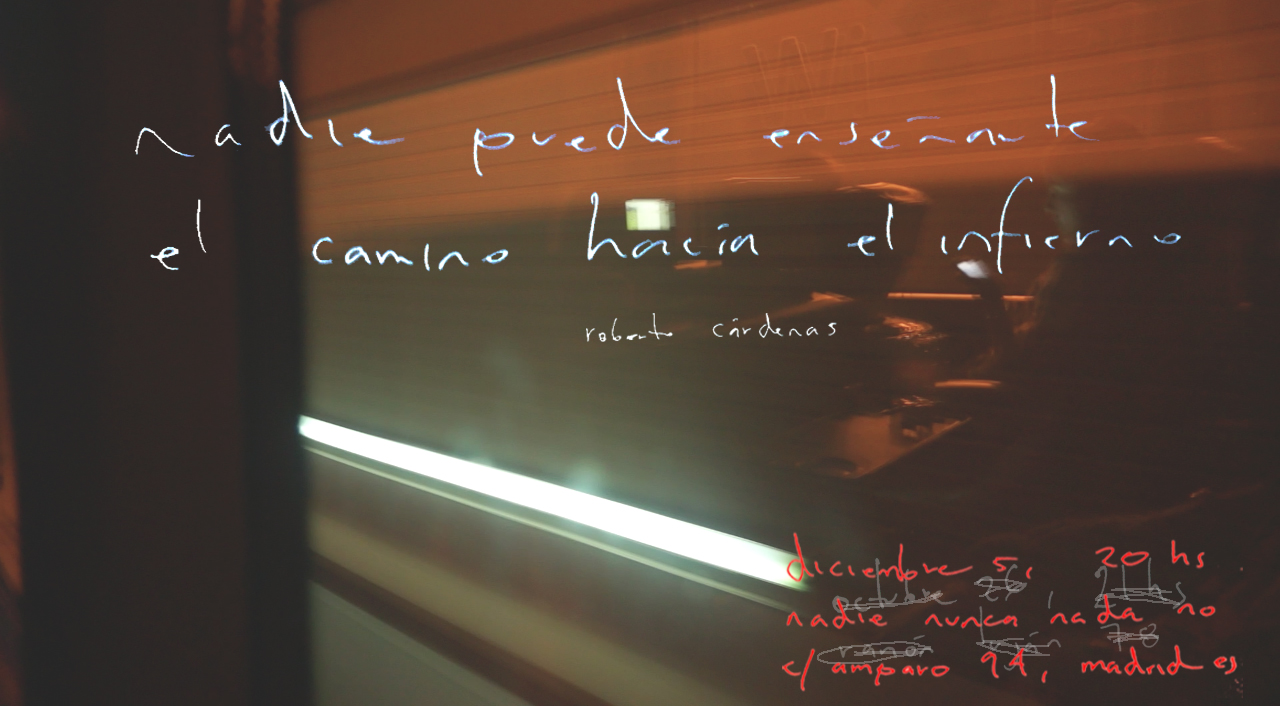 nadie puede enseñarte
el camino hacia el infierno
roberto cárdenas
diciembre 5, 20 hs.
octubre 21 hs
nadie nunca nada no
ramón 78
c/ amparo 94, madrid es